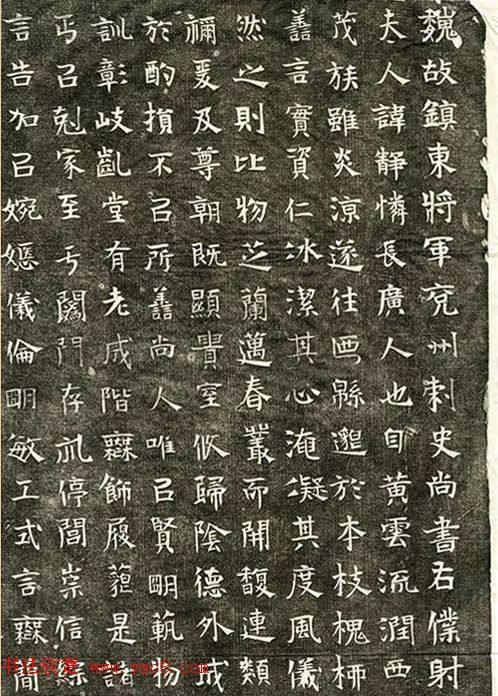 魏故鎮東將軍兗州刺史尚書右僕射
夫人諱靜憐長廣人也自黃雲流潤西
茂族雖炎涼遂往縣邈於本枝槐柳
善言實資仁冰潔其心淹凝其度風儀
然之則比物芝蘭邁春叢而開馥連類
禰爰及尊朝既顯貴室攸歸陰德外成
於酌損不㠯所善尚人唯㠯賢明軌物
訓彰岐堂有老成階無飾履是諸
㠯剋家至于門存停閭崇信
言告加㠯婉嫕儀倫明敏工式言無間